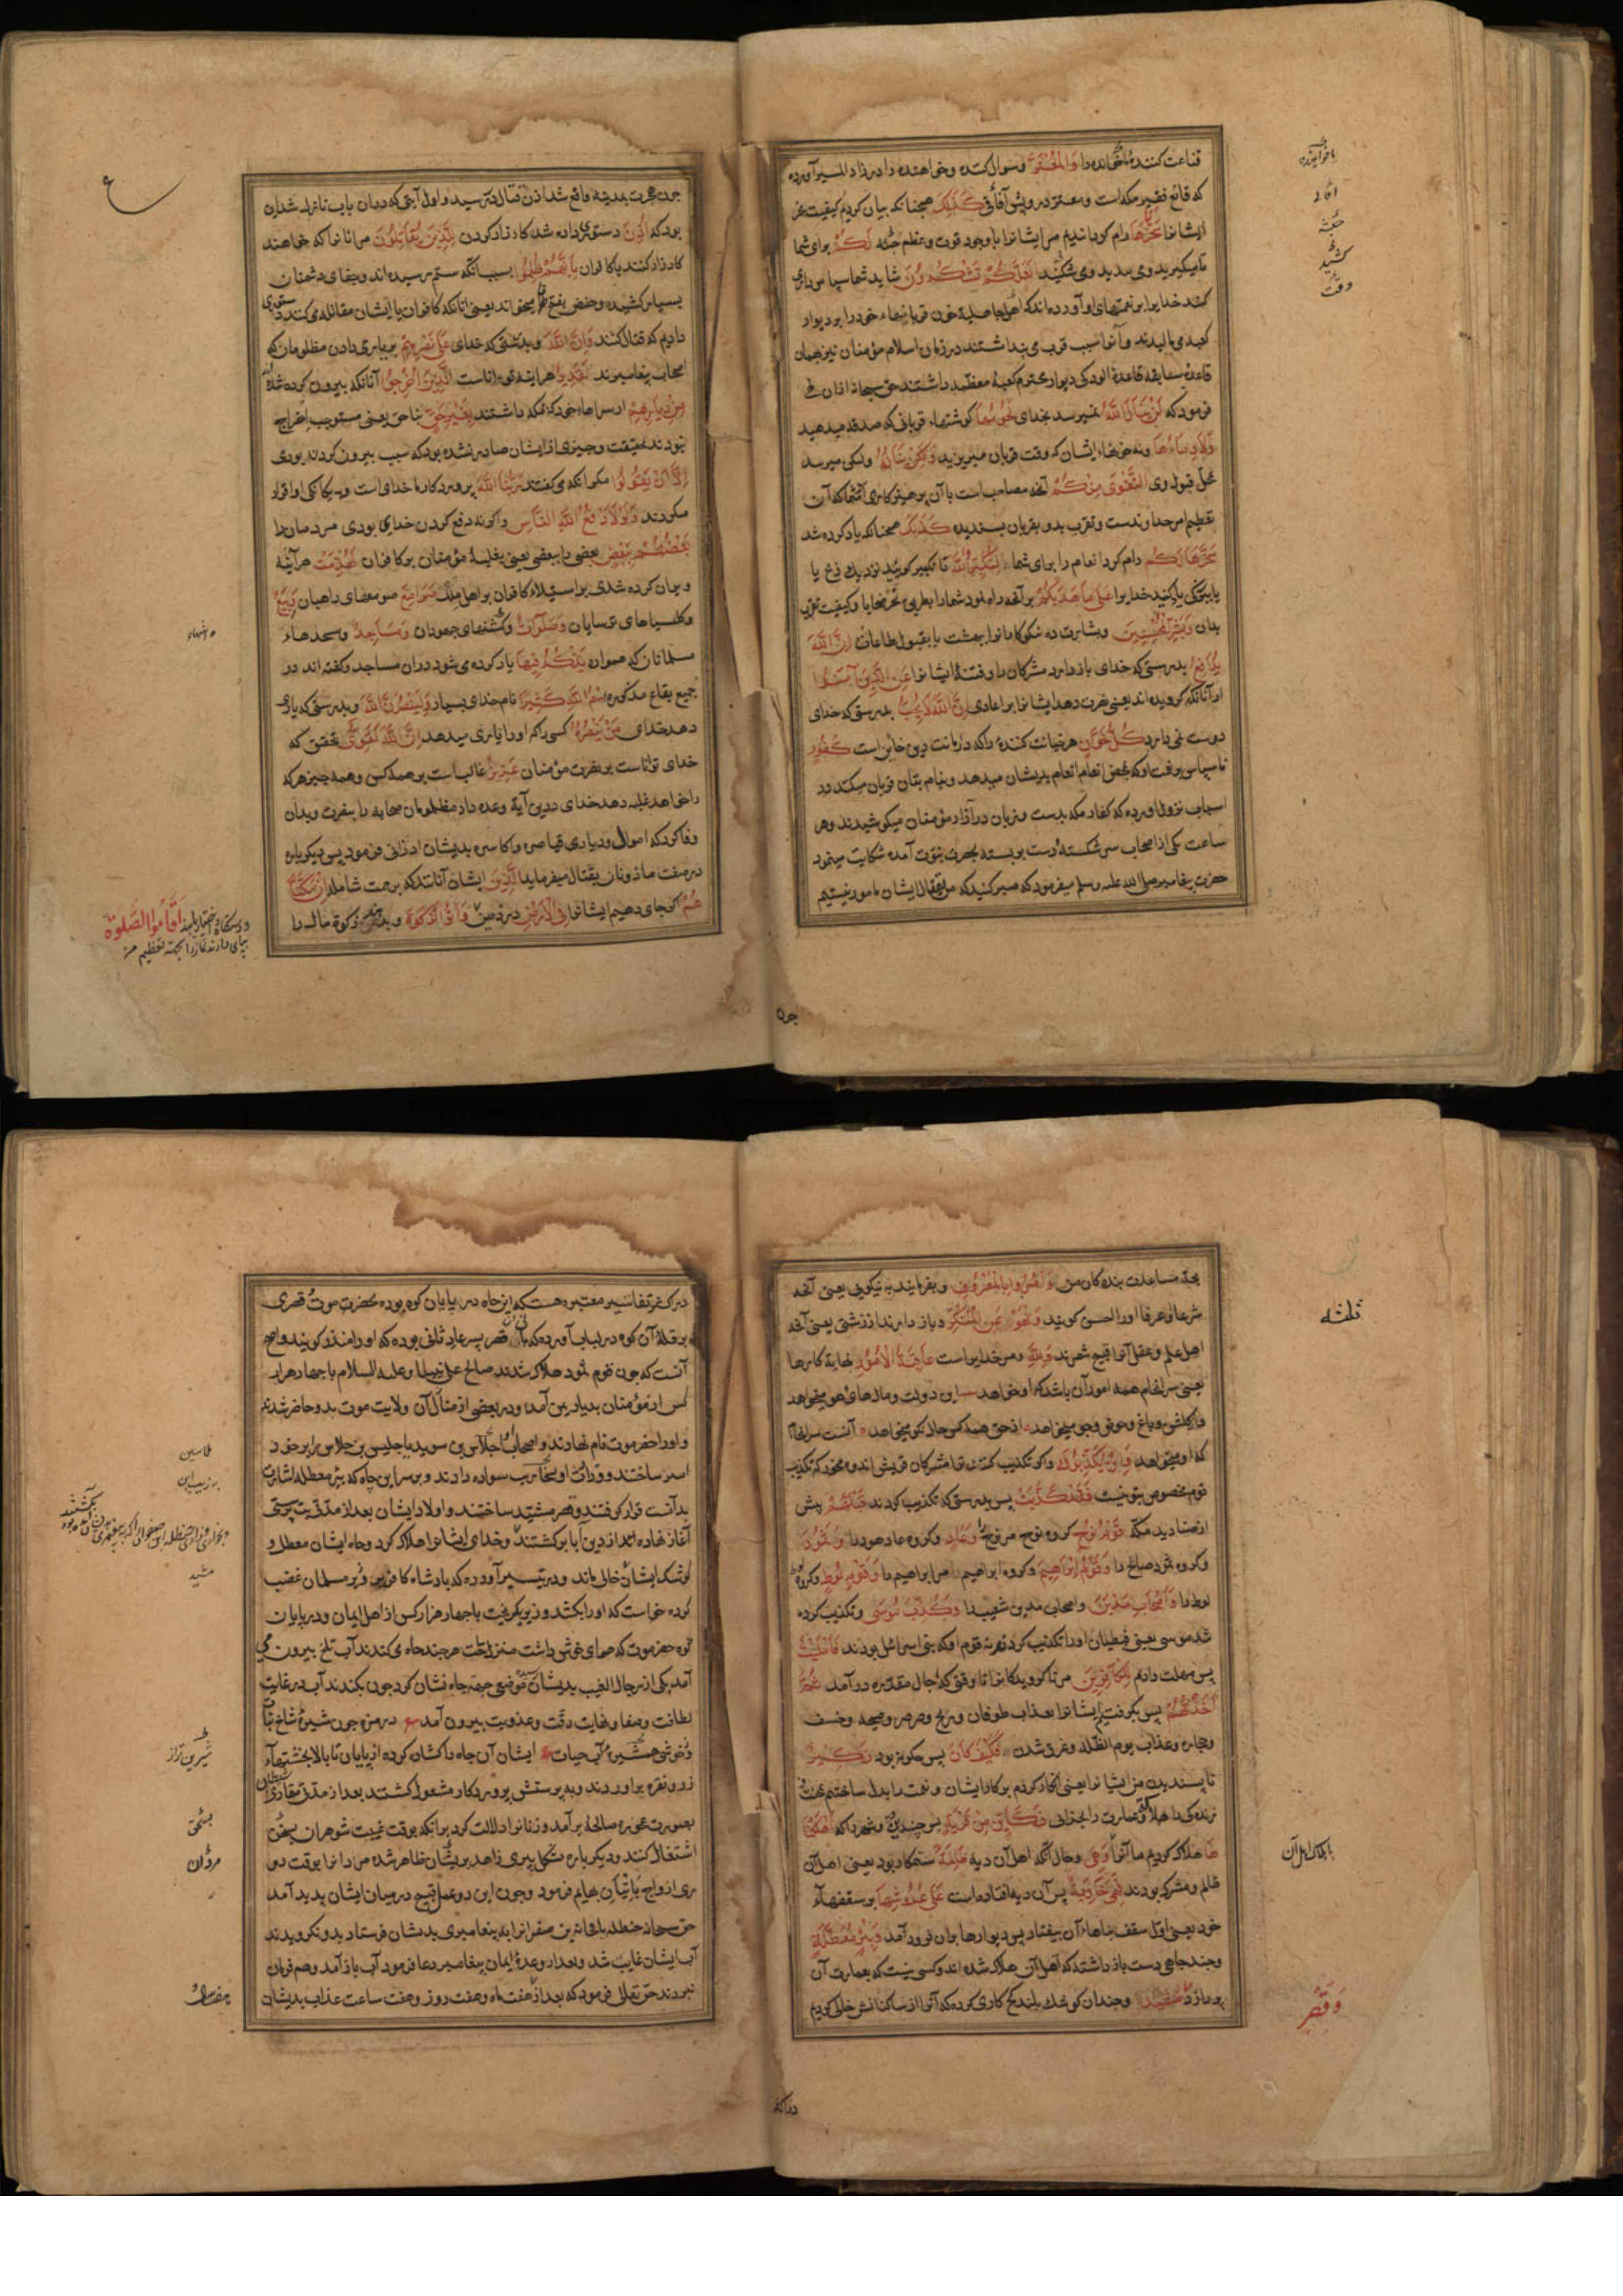 قناعت کننده ناخواهنده را وَالْمُعْتَرَّ و سوال کننده و خواهنده را در زاد المسیر آورده
که قانع فقیر مکه است و معتر درویش آفاقی کَذٰلِکَ همچنانکه بیان کردیم کیفیت نحر
ایشانرا سَخَّرْنَاهَا رام گردانیدیم مر ایشانرا با وجود قوت و عظم جثه لَکُمْ برای شما
تا میگیرید و می بندید و می کشید لَعَلَّکُمْ تَشْکُرُونَ شاید شما سپاس داری
کنید خدایرا بر نعمتهای او آورده اند که اهل جاهلیة خون قربانیهاء خود را بر دیوار
کعبه می مالیدند و آنرا سبب قربت می پنداشتند در زمان اسلام مؤمنان نیز بهمان
قاعدهٔ سابقه
فرمود که لَنْ یَنَالَ اللهَ نمیرسد بخدای لُحُومُهَا گوشتهاء قربانی که صدقه میدهید
وَلَا دِمَاؤُهَا و نه خونهاء ایشان که وقت قربان میریزید وَلٰکِنْ یَنَالُهُ ولکن میرسد
بمحل قبول وی التَّقْوٰی مِنْکُمْ آنچه مصاحب است با آن پرهیزکاری شما که آن
تعظیم امر خداوندست و تقرب بدو بقربان پسندیده کَذٰلِکَ همچنانکه یاد کرده شد
سَخَّرَهَا لَکُمْ رام کرد انعام را برای شما لِتُکَبِّرُوا اللهَ تا تکبیر گویید نزدیک ذبح یا
بابزرگی یاد کنید خدایرا عَلٰی مَا هَدٰیکُمْ بر آنچه راه نمود شما را بطریق نحر ضحایا و کیفیت تقرب
بدان وَبَشِّرِ الْمُحْسِنِینَ و بشارت ده نیکوکارانرا ببهشت یا بقبول طاعات اِنَّ اللهَ
یُدَافِعُ بدرستی که خدای باز دارد مشرکان را و فتنهٔ ایشانرا عَنِ الَّذِینَ آمَنُوا
از آنانکه گرویده اند یعنی نصرت دهد ایشانرا بر اعادی اِنَّ اللهَ لَا یُحِبُّ بدرستی که خدای
دوست نمی دارد کُلَّ خَوَّانٍ هر خیانت کننده را که در امانت دین خاین است کَفُورٍ
ناسپاس بر نعمت او که بمحض انعام انعام بدیشان میدهد و بنام بتان قربان میکنند در
اسباب نزول آورده که کفار مکه بدست و زبان در آزار مؤمنان میکوشیدند و هر
ساعت یکی از اصحاب سر شکسته و دست بر بسته بحضرت نبوت آمده شکایت مینمود
حضرت پیغامبر صلی الله علیه وسلم میفرمود که صبر کنید که من بقتال ایشان مامور نیستیم
چون
چون هجرت بمدینه واقع شد اذن قتال در رسید و اول آیتی که در آن باب نازل شد این
بود که اُذِنَ دستوری داده شد کارزار کردن لِلَّذِینَ یُقَاتَلُونَ مر آنانرا که خواهند
کارزار کنند با کافران بِاَنَّهُمْ ظُلِمُوا بسبب آنکه ستم رسیده اند و جفای دشمنان
بسیار کشیده و حفص بفتح تا میخواند یعنی آنانکه کافران با ایشان مقاتله می کنند دستوری
دادیم که قتال کنند وَاِنَّ اللهَ و بدرستی که خدای عَلٰی نَصْرِهِمْ بر یاری دادن مظلومان که
اصحاب پیغامبرند لَقَدِیرٌ هر اینه تواناست الَّذِینَ اُخْرِجُوا آنانکه بیرون کرده شده اند
مِنْ دِیَارِهِمْ از سراهاء خود که در مکه داشتند بِغَیْرِ حَقٍّ بناحق یعنی مستوجب اخراج
نبودند بحقیقت و چیزی از ایشان صادر نشده بود که سبب بیرون کردن بودی
اِلَّا اَنْ یَقُولُوا مگر آنکه می گفتند رَبُّنَا اللهُ پروردگار ما خدای است و به یگانگی او اقرار
میکردند وَلَوْلَا دَفْعُ اللهِ النَّاسَ و اگر نه دفع کردن خدای بودی مردمان را
بَعْضَهُمْ بِبَعْضٍ بعضی را ببعضی یعنی بغلبهٔ مؤمنان بر کافران لَهُدِّمَتْ هر آینه
ویران کرده شدی بر استیلاء کافران بر اهل ملل صَوَامِعُ صومعهای راهبان وَبِیَعٌ
و کلیسیاهای ترسایان وَصَلَوَاتٌ و کنشتهای جهودان وَمَسَاجِدُ و مسجدهاء
مسلمانان که همواره یُذْکَرُ فِیهَا یاد کرده می شود در آن مساجد و گفته اند در
جمیع بقاع مذکوره اسْمُ اللهِ کَثِیرًا نام خدای بسیار وَلَیَنْصُرَنَّ اللهُ و بدرستی که یاری
دهد خدای مَنْ یَنْصُرُهُ کسی را که او را یاری میدهد اِنَّ اللهَ لَقَوِیٌّ بتحقیق که
خدای تواناست بر نصرت مؤمنان عَزِیزٌ غالب است بر همه کس و همه چیز هر که
را خواهد غلبه دهد خدای درین آیة وعده داد مظلومان صحابه را بنصرت و بدان
وفا کرد که اموال و دیار قیاصره و اکاسره بدیشان ارزانی فرمود پس دیگر باره
در صفت ماذونان بقتال میفرماید الَّذِینَ ایشان آنانند که برحمت شامله اِنْ مَکَّنَّا
هُمْ اگر جای دهیم ایشانرا فِی الْاَرْضِ در زمین وَآتَوُا الزَّکٰوةَ و بدهند زکوة مال را
اَقَامُوا الصَّلٰوةَ
بپای دارند نماز را بجهت تعظیم من
بجهة مساعدت بندگان من وَاَمَرُوا بِالْمَعْرُوفِ و بفرمایند به نیکویی یعنی آنچه
شرعا و عرفا او را حسن گویند وَنَهَوْا عَنِ الْمُنْکَرِ و باز دارند از زشتی یعنی آنچه
اهل علم و عقل آنرا قبیح شمرند وَلِلّٰهِ و مر خدایراست عَاقِبَةُ الْاُمُورِ نهایة کارها
یعنی سرانجام همه امور آن باشد که او خواهد
که او میخواهد وَاِنْ یُکَذِّبُوکَ و اگر تکذیب کنند ترا مشرکان قریش اندوه مخور که تکذیب
قوم مخصوص بتو نیست فَقَدْ کَذَّبَتْ پس بدرستی که تکذیب کردند قَبْلَهُمْ پیش
از صنادید مکه قَوْمُ نُوحٍ گروه نوح مر نوح را وَعَادٌ و گروه عاد هود را وَثَمُودُ
و گروه ثمود صالح را وَقَوْمُ اِبْرَاهِیمَ و گروه ابراهیم مر ابراهیم را وَقَوْمُ لُوطٍ و گروه لوط
لوط را وَاَصْحَابُ مَدْیَنَ و اصحاب مدین شعیب را وَکُذِّبَ مُوسٰی و تکذیب کرده
شد موسی یعنی قبطیان او را تکذیب کردند نه قوم او که بنی اسرائیل بودند فَاَمْلَیْتُ
پس مهلت دادم لِلْکَافِرِینَ مر ناگرویدگانرا تا وقتی که آجال مقدره در آمد ثُمَّ
اَخَذْتُهُمْ پس بگرفتیم ایشانرا بعذاب طوفان و ریح و صرصر و صیحه و خسف
و حجاره و عذاب یوم الظله و غرق شدن فَکَیْفَ کَانَ پس چگونه بود نَکِیرِ
ناپسندیدن من ایشانرا یعنی انکار کردم بر کار ایشان و نعمت را بدل ساختیم بمحنت و
زندگی را بهلاک و عمارت را بخرابی فَکَاَیِّنْ مِنْ قَرْیَةٍ پس چندین دیه و شهر را که اَهْلَکْنَا
هَا هلاک کردیم ما آنرا وَهِیَ و حال آنکه اهل آن دیه ظَالِمَةٌ ستمکار بود یعنی اهل آن
ظالم و مشرک بودند فَهِیَ خَاوِیَةٌ پس آن دیه افتاده است عَلٰی عُرُوشِهَا بر سقفهاء
خود یعنی اول سقف بناهاء آن بیفتاد پس دیوارها بران فرود آمد وَبِئْرٍ مُعَطَّلَةٍ
و چند چاهی دست باز داشته که اهل آن هلاک شده اند و کسی نیست که بعمارت آن
پردازد مَشِیدٍ و چندان کوشک بلند گچ کاری کرده که آنرا از ساکنانش خالی کردیم
وَقَصْرٍ
در اکثر
در اکثر تفاسیر معتبره هست که این چاه در پایان کوه بوده بحضرموت و قصری
بر قلهٔ آن کوه در لباب آورده که بانی آن قصر پسر عاد ثانی بوده که او را منذر گویند و اصح
آنست که چون قوم ثمود هلاک شدند صالح علی نبینا وعلیه السلام با چهار هزار
کس از مؤمنان بدیار یمن آمد و در بعضی از منازل آن ولایت موت بدو حاضر شد
و او را حضرموت نام نهادند و اصحاب او جلاس بن سوید یا جلیس بن جلاس را بر خود
امیر ساختند و وزارت او بسنجاریب بن سواده دادند و بر سر این چاه که بئر معطله اشارت
بدانست قرار گرفتند و قصر مشید ساختند و اولاد ایشان بعد از مدتی بت پرستی
آغاز نهاده از دین آبا برگشتند و خدای ایشانرا هلاک کرد و چاه ایشان معطل و
کوشک ایشان خالی ماند و در تیسیر آورده که پادشاه کافر بر وزیر مسلمان غضب
کرده خواست که او را بکشد وزیر بگریخت با چهار هزار کس از اهل ایمان و در پایان
کوه حضرموت که هوای خوشی داشت منزل ساخت هر چند چاه می کندند آب تلخ بیرون می
آمد یکی از رجال الغیب بدیشان موضعی جهت چاه نشان کرد چون بکندند آب در غایت
لطافت و صفا و نهایت رقت و عذوبت بیرون آمد در مزه چون شیرهٔ شاخ نبات
و خوشی همشیرهٔ آب حیات ایشان آن چاه را گشاده کرده از پایان تا بالا بخشتهاء
زر و نقره براوردند و به پرستش پروردگار مشغول گشتند بعد از مدتی متمادی شیطان
بصورت عجوزه صالحهٔ بر آمد و زنانرا دلالت کرد بر آنکه بوقت غیبت شوهران بسحق
اشتغال کنند و دیگر باره بشکل پیری زاهد بر ایشان ظاهر شده مردانرا بوقت دو
ری ازواج باتیان بهایم فرمود و چون این دو عمل قبیح در میان ایشان پدید آمد
حق سبحانه حنظله یا قحافه بن صفوانرا به پیغامبری بدیشان فرستاد بدو نگرویدند
آب ایشان غایب شد و بعد از وعدهٔ ایمان پیغامبر دعا فرمود آب باز آمد و هم فرمان
نبردند حق تعالی فرمود که بعد از هفت ماه و هفت روز و هفت ساعت عذاب بدیشان